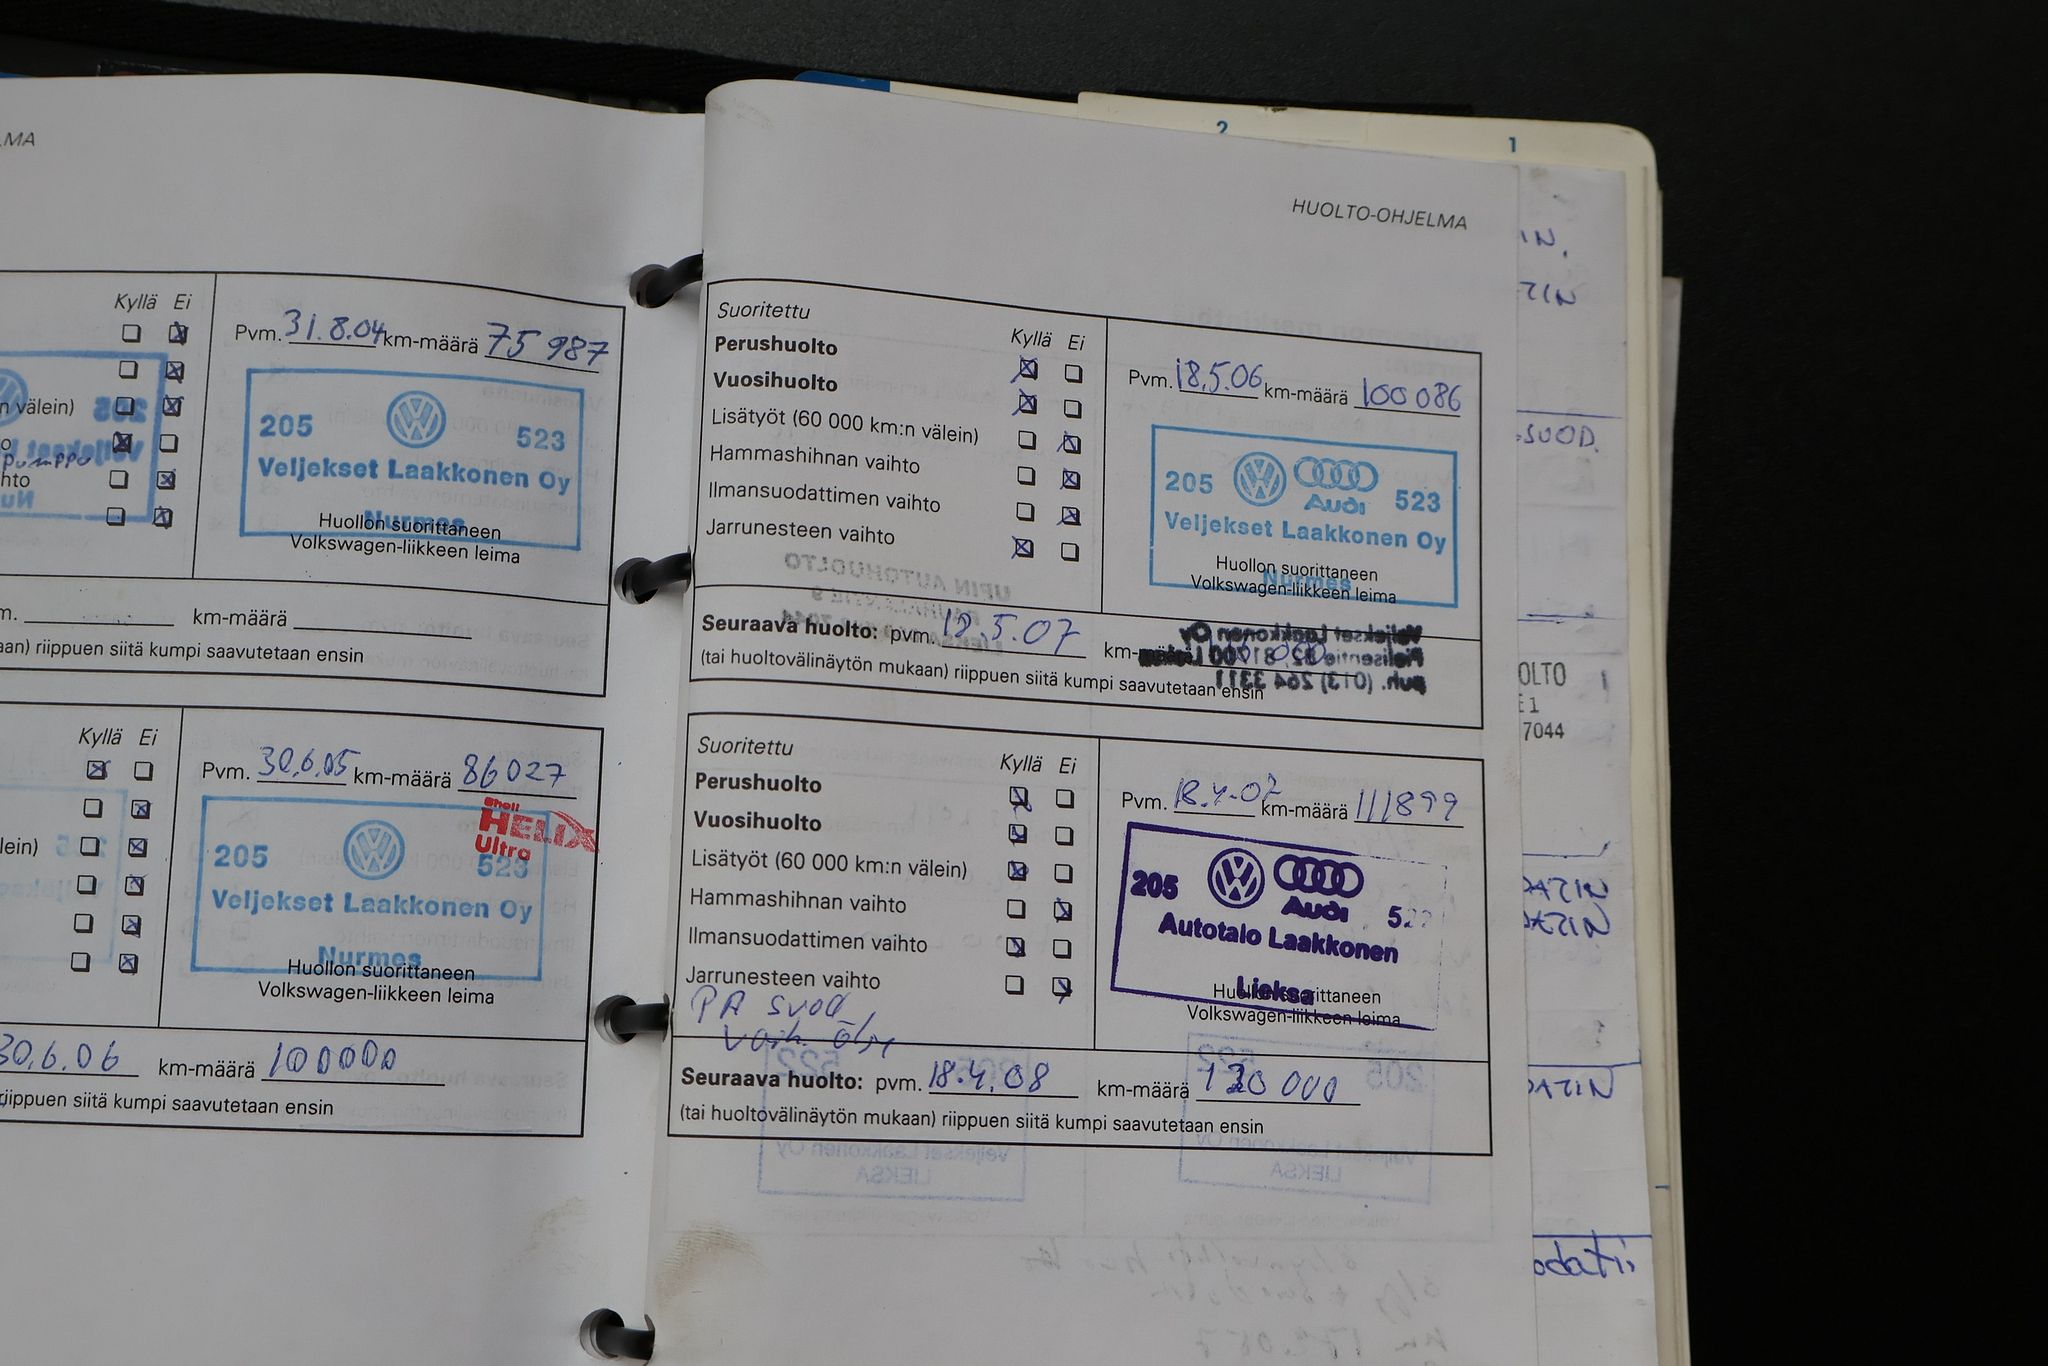 LMA
Kyllä Ei
Pvm. 31.8.04 km-määrä 75 987
n välein)
pumppu
hto
205 523
Veljekset Laakkonen Oy
Nurmes
Huollon suorittaneen
Volkswagen-liikkeen leima
m. km-määrä
aan) riippuen siitä kumpi saavutetaan ensin
Kyllä Ei
Pvm. 30.6.05 km-määrä 86027
Shell
HELIX
Ultra
lein)
205 523
Veljekset Laakkonen Oy
Nurmes
Huollon suorittaneen
Volkswagen-liikkeen leima
30.6.06 km-määrä 100000
riippuen siitä kumpi saavutetaan ensin
2
1
HUOLTO-OHJELMA
Suoritettu
Kyllä Ei
Perushuolto
Vuosihuolto
Lisätyöt (60 000 km:n välein)
Hammashihnan vaihto
Ilmansuodattimen vaihto
Jarrunesteen vaihto
Pvm. 18.5.06 km-määrä 100 086
205 Audi 523
Veljekset Laakkonen Oy
Nurmes
Huollon suorittaneen
Volkswagen-liikkeen leima
Seuraava huolto: pvm. 18.5.07 km-
(tai huoltovälinäytön mukaan) riippuen siitä kumpi saavutetaan ensin
Suoritettu
Kyllä Ei
Perushuolto
Vuosihuolto
Lisätyöt (60 000 km:n välein)
Hammashihnan vaihto
Ilmansuodattimen vaihto
Jarrunesteen vaihto
PA suod
Pvm. 18.4.07 km-määrä 111899
205 Audi
Autotalo Laakkonen
Lieksa
Huollon suorittaneen
Volkswagen-liikkeen leima
Seuraava huolto: pvm. 18.4.08 km-määrä 130 000
(tai huoltovälinäytön mukaan) riippuen siitä kumpi saavutetaan ensin
IN.
TIN
SUOD.
OLTO
E 1
7044
ATIN
ATIN
ATIN
odatti